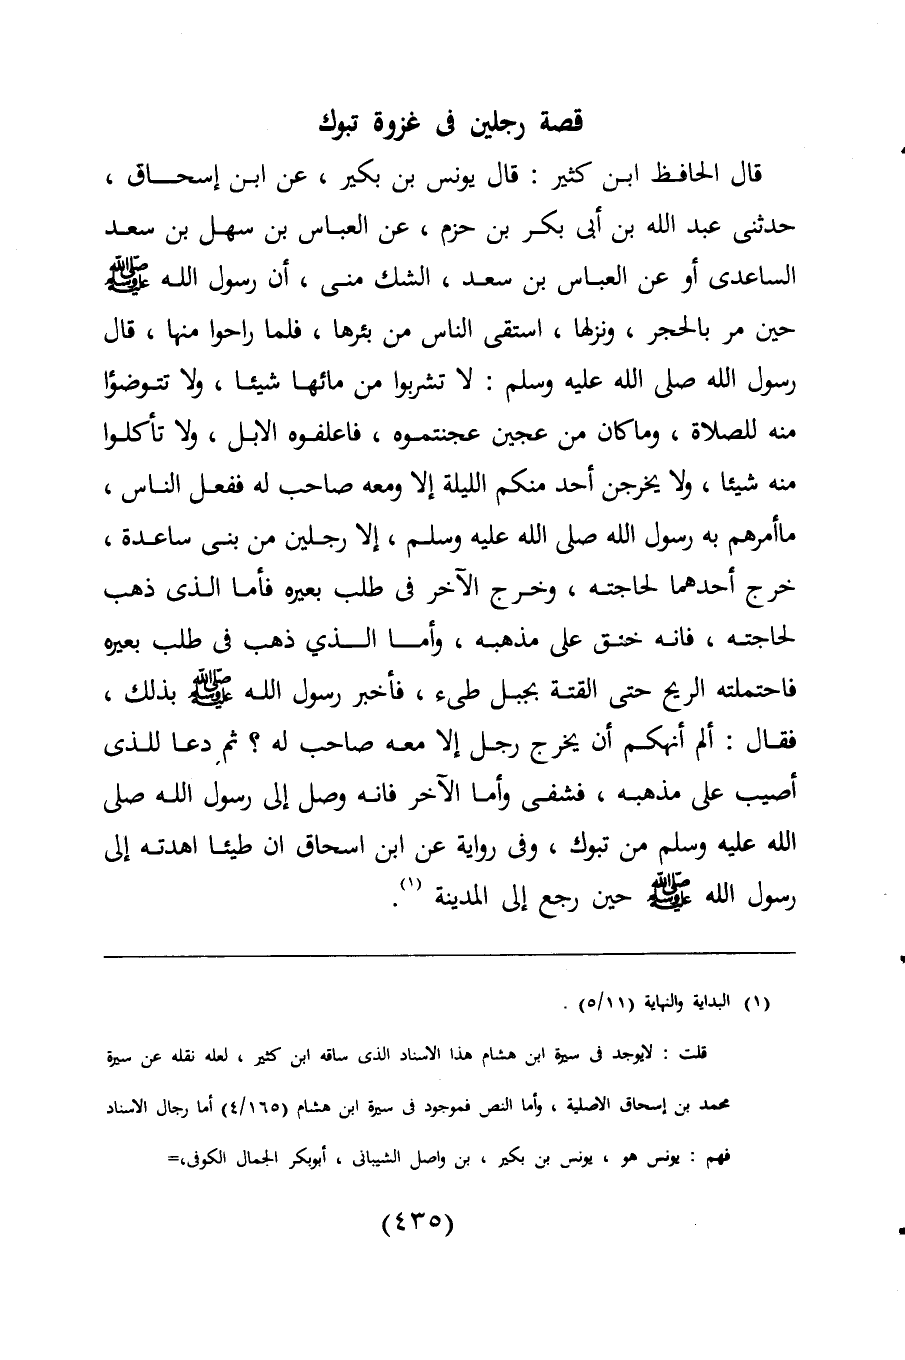 قصة رجلين فى غزوة تبوك
قال الحافظ ابن كثير : قال يونس بن بكير ، عن ابن إسحاق ،
حدثنى عبد الله بن أبى بكر بن حزم ، عن العباس بن سهل بن سعد
الساعدى أو عن العباس بن سعد ، الشك منى ، أن رسول الله ﷺ
حين مر بالحجر ، ونزلها ، استقى الناس من بئرها ، فلما راحوا منها ، قال
رسول الله صلى الله عليه وسلم : لا تشربوا من مائها شيئا ، ولا تتوضؤا
منه للصلاة ، وماكان من عجين عجنتموه ، فاعلفوه الابل ، ولا تأكلوا
منه شيئا ، ولا يخرجن أحد منكم الليلة إلا ومعه صاحب له ففعل الناس ،
ماأمرهم به رسول الله صلى الله عليه وسلم ، إلا رجلين من بنى ساعدة ،
خرج أحدهما لحاجته ، وخرج الآخر فى طلب بعيره فأما الذى ذهب
لحاجته ، فانه خنق على مذهبه ، وأما الذي ذهب فى طلب بعيره
فاحتملته الريح حتى القتة بجبل طىء ، فأخبر رسول الله ﷺ بذلك ،
فقال : ألم أنهكم أن يخرج رجل إلا معه صاحب له ؟ ثم دعا للذى
أصيب على مذهبه ، فشفى وأما الآخر فانه وصل إلى رسول الله صلى
الله عليه وسلم من تبوك ، وفى رواية عن ابن اسحاق ان طيئا اهدته إلى
رسول الله ﷺ حين رجع إلى المدينة (١).
(١) البداية والنهاية (٥/١١) .
قلت : لايوجد فى سيرة ابن هشام هذا الاسناد الذى ساقه ابن كثير ، لعله نقله عن سيرة
محمد بن إسحاق الاصلية ، وأما النص فموجود فى سيرة ابن هشام (٤/١٦٥) أما رجال الاسناد
فهم : يونس هو ، يونس بن بكير ، بن واصل الشيبانى ، أبوبكر الجمال الكوفى،=
(٤٣٥)